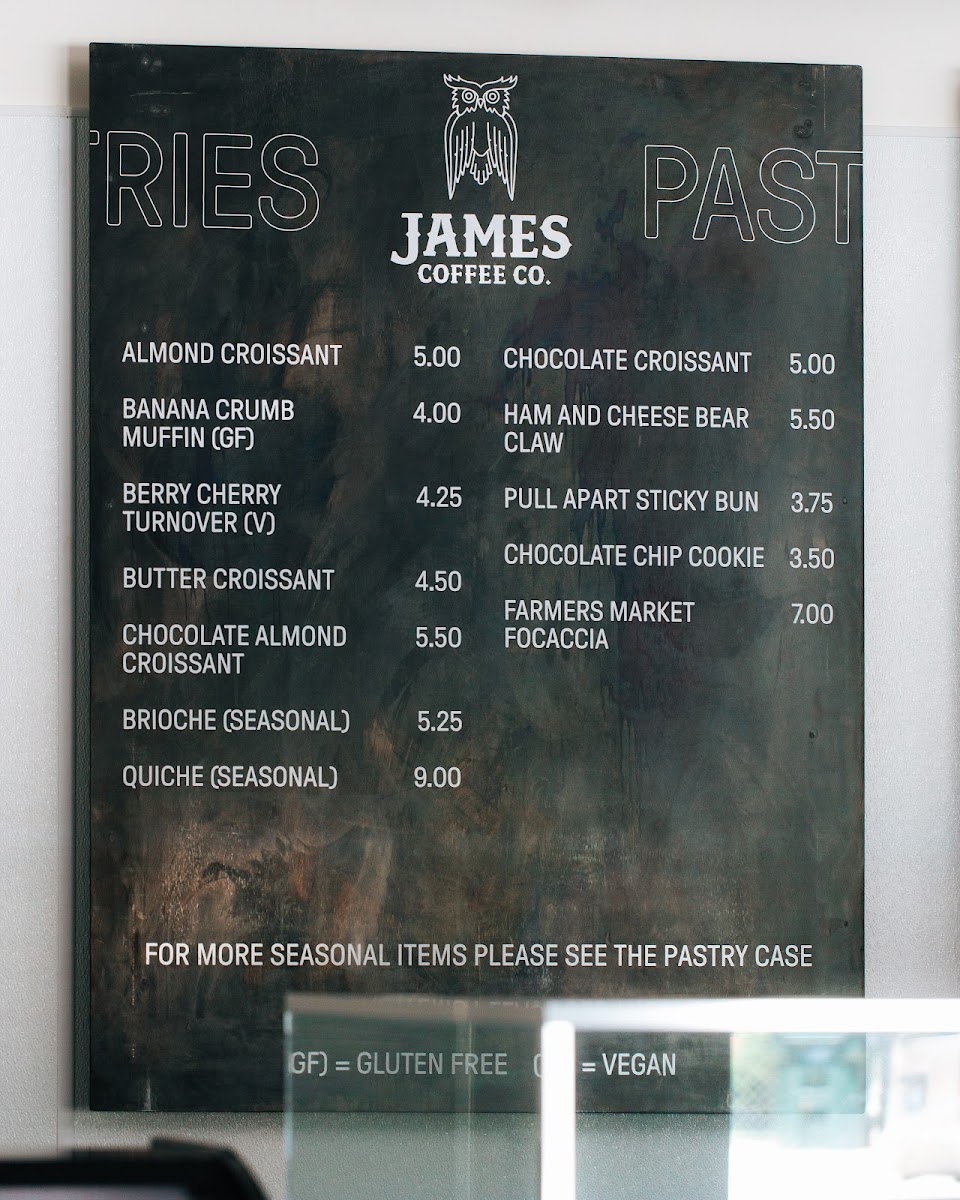 TRIES
PAST
JAMES
COFFEE CO.
ALMOND CROISSANT 5.00
BANANA CRUMB 4.00
MUFFIN (GF)
BERRY CHERRY 4.25
TURNOVER (V)
BUTTER CROISSANT 4.50
CHOCOLATE ALMOND 5.50
CROISSANT
BRIOCHE (SEASONAL) 5.25
QUICHE (SEASONAL) 9.00
CHOCOLATE CROISSANT 5.00
HAM AND CHEESE BEAR 5.50
CLAW
PULL APART STICKY BUN 3.75
CHOCOLATE CHIP COOKIE 3.50
FARMERS MARKET 7.00
FOCACCIA
FOR MORE SEASONAL ITEMS PLEASE SEE THE PASTRY CASE
GF) = GLUTEN FREE ( = VEGAN